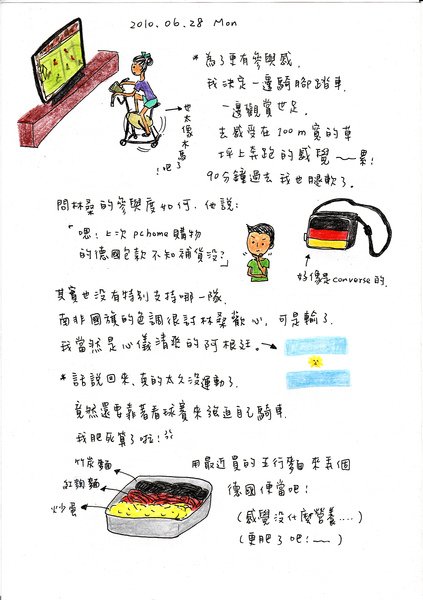 2010.06.28 Mon
*為了更有參與感.
我決定一邊騎腳踏車.
一邊觀賞世足.
去感受在100m寬的草
坪上奔跑的感覺~~累!
90分鐘過去我也腿軟了.
也太像木馬了吧!
問林桑的參與度如何.他說:
「嗯!上次pchome購物
的德國包款不知補貨沒?」
好像是converse的.
其實也沒有特別支持哪一隊.
南非國旗的色調很討林桑歡心,可是輸了.
我當然是心儀清爽的阿根廷.
*話說回來.真的太久沒運動了.
竟然還要靠著看球賽來強迫自己騎車.
我肥死算了啦!
竹炭麵
紅麴麵
炒蛋
用最近買的五行麵來弄個
德國便當吧!
(感覺沒什麼營養....)
(更肥了吧!~~)